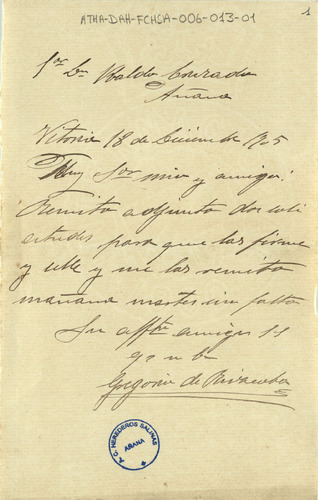 ATHA-DAH-FCHSA-006-013-01
1
Sor Dn Ubaldo Conrado
Añana
Vitoria 18 de Diciembre 1905
Muy Sor mio y amigo:
Remito adjunto dos soli
citudes para que las firme
y selle y me las remita
mañana martes sin falta
Su affmo amigo s s
q s m b
Gregorio de
A.C. HEREDEROS SALINAS
AÑANA